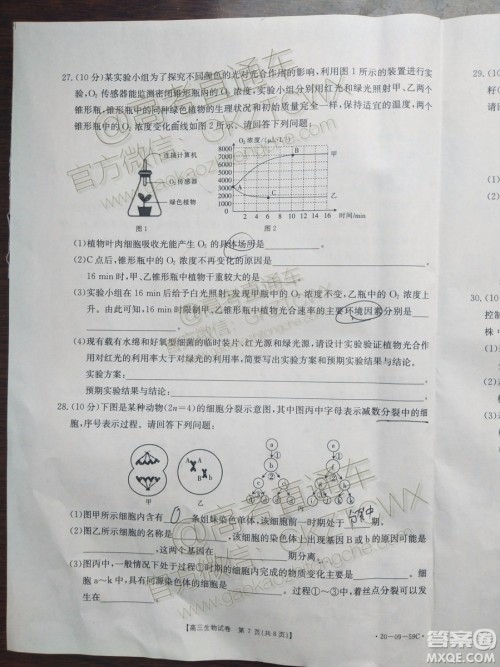 27.(10分)某实验小组为了探究不同颜色的光对光合作用的影响,利用图1所示的装置进行实
验,O₂传感器能监测密闭锥形瓶内的O₂浓度,实验小组分别用红光和绿光照射甲、乙两个
锥形瓶,锥形瓶中的同种绿色植物的生理状况和初始质量完全一样,保持其他条件相同,两个
锥形瓶中的O₂浓度变化曲线如图2所示。请回答下列问题:
连接计算机
O₂传感器
绿色植物
图1
O₂浓度/
8000
7000
6000
5000
4000
3000
2000
1000
0 2 4 6 8 10 12 14 16 时间/min
A
B
C
甲
乙
图2
(1)植物叶肉细胞吸收光能产生O₂的具体场所是
(2)C点后,锥形瓶中的O₂浓度不再变化的原因是
16 min时,甲、乙锥形瓶中植物干重较大的是
(3)实验小组在16 min后给予白光照射,发现甲瓶中的O₂浓度不变,乙瓶中的O₂浓度上
升。由此可知,16 min时限制甲、乙锥形瓶中植物光合速率的主要环境因素分别是
(4)现有载有水绵和好氧型细菌的临时装片、红光源和绿光源,请设计实验验证植物光合作用
对红光的利用率大于对绿光的利用率,简要写出实验方案和预期实验结果与结论。
实验方案:
预期实验结果与结论:
28.(10分)下图是某种动物(2n=4)的细胞分裂示意图,其中图丙中字母表示减数分裂中的细
胞,序号表示过程。请回答下列问题:
甲
乙
丙
(1)图甲所示细胞内含有 0 条姐妹染色单体,该细胞前一时期处于 期。
(2)图乙所示细胞的名称是 ,该细胞的染色体上出现基因B和b的原因是
,这两个基因在 期分离。
(3)图丙中,一般情况下处于过程①时期的细胞内完成的物质变化主要是 。
细胞a~k中,具有同源染色体的细胞有 。过程①~③中,着丝点分裂可以发
【高三生物试卷 第7页(共8页)】
·20-09-59C·
高考直通车
答案圈